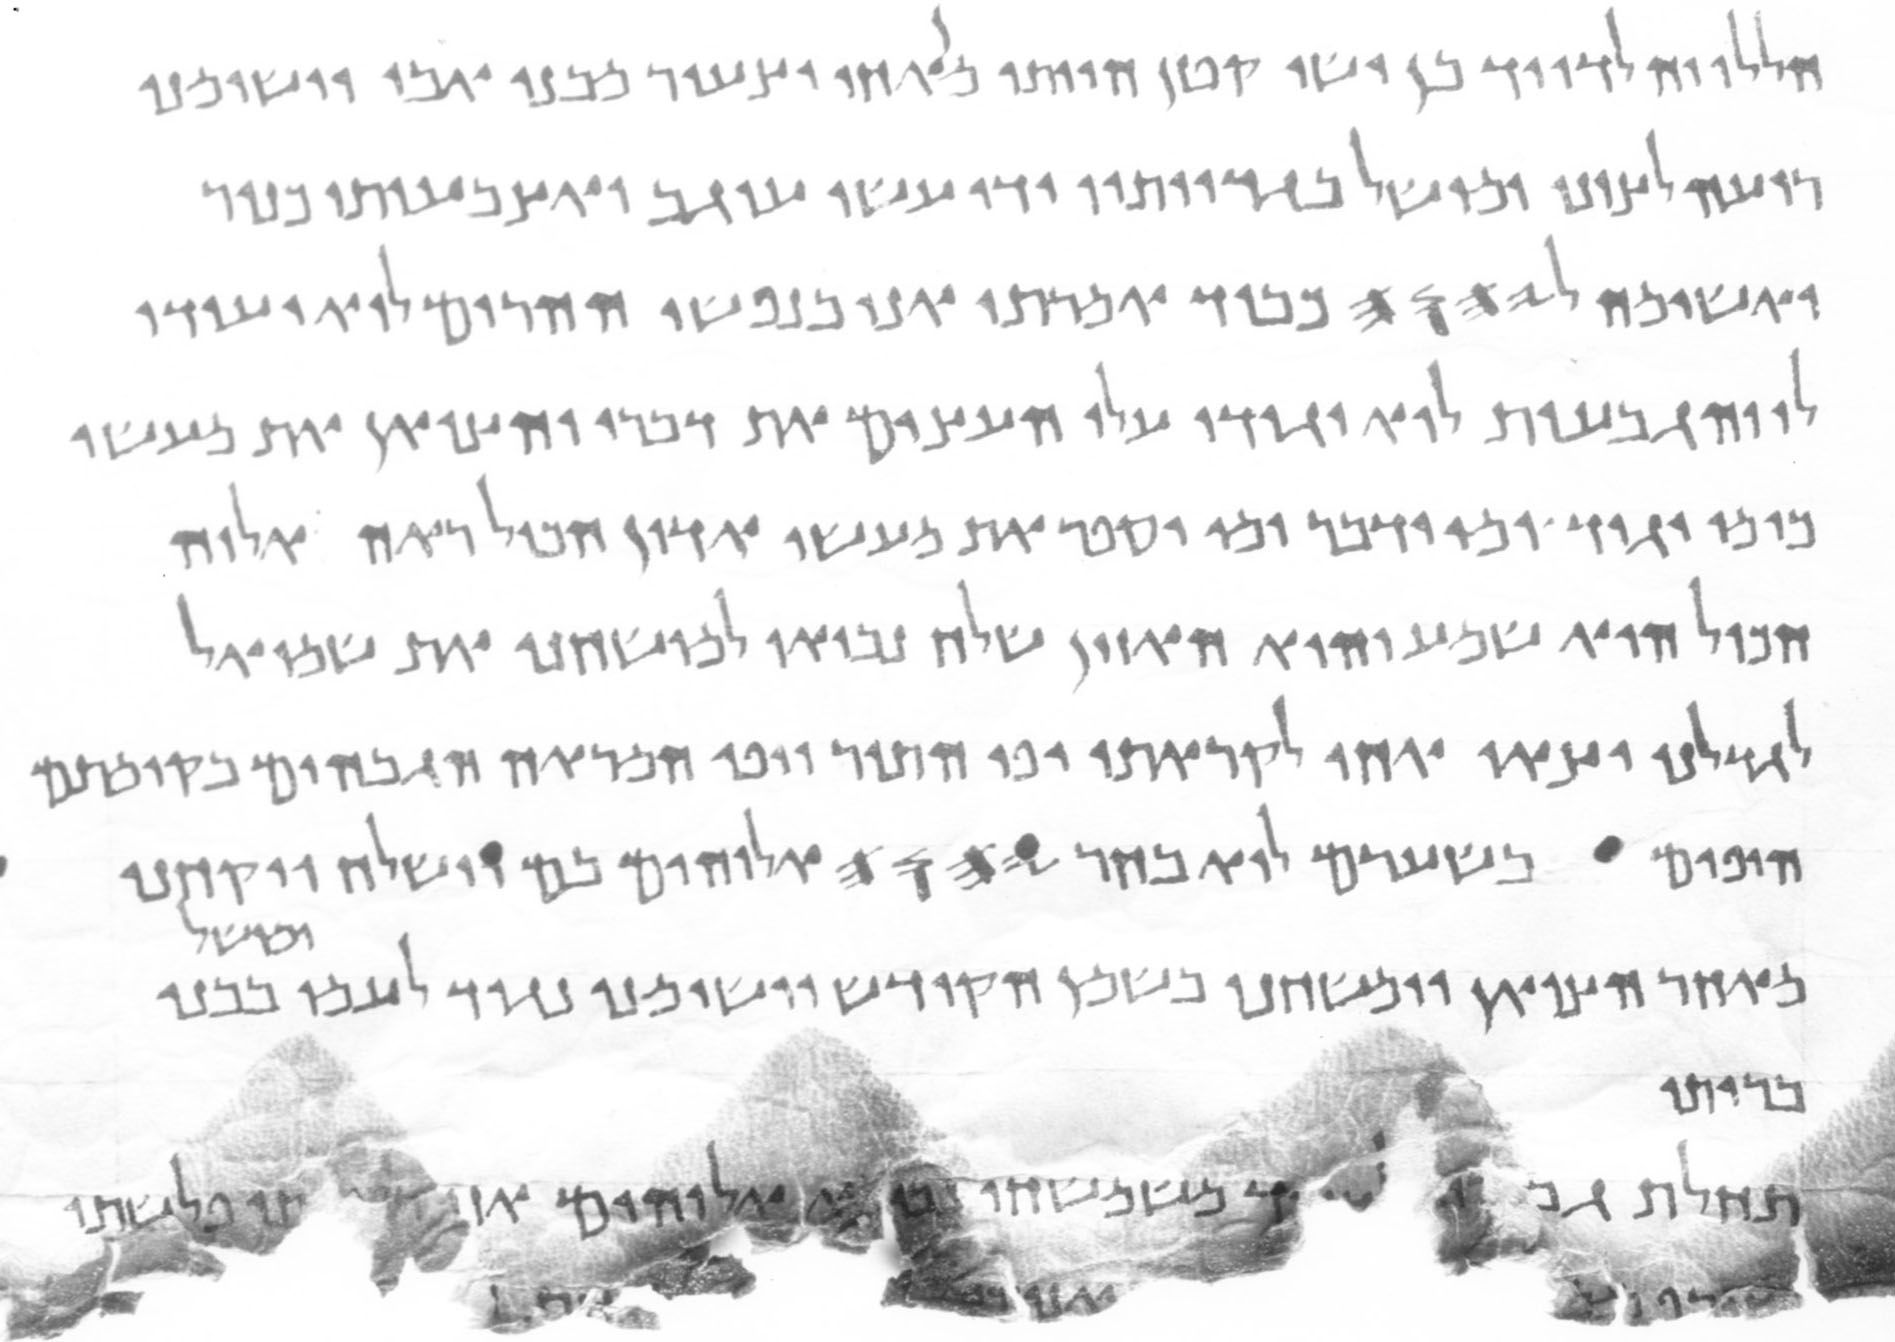 הללויה לדויד בן ישי קטן הייתי מאחי וצעיר מבני אבי וישימני
רועה לצונו ומושל בגדיותיו ידי עשו עוגב ואצבעותי כנור
ואשימה ל𐤉𐤄𐤅𐤄 כבוד אמרתי אני בנפשי ההרים לוא יעידו
לי והגבעות לוא יגידו עלו העצים את דברי והצואן את מעשי
כי מי יגיד ומי ידבר ומי יספר את מעשי אדון הכול ראה אלוה
הכול הוא שמע והוא האזין שלח נביאו למושחני את שמואל
לגדלני יצאו אחי לקראתו יפי התור ויפי המראה הגבהים בקומתם
היפים בשערם לוא בחר 𐤉𐤄𐤅𐤄 אלוהים בם וישלח ויקחני
ומושל
מאחר הצואן וימשחני בשמן הקודש וישימני נגיד לעמו בבני
בריתו
תחלת משמשחו נביא אלוהים פלשתי